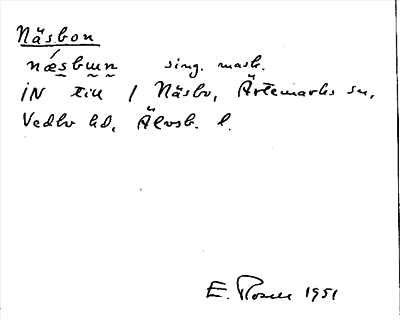 Näsbon
nǽsbɯn sing. mask.
IN till / Näsbo, Ärtemarks sn,
Vedbo hd, Älvsb. l.
E. Rosell 1951